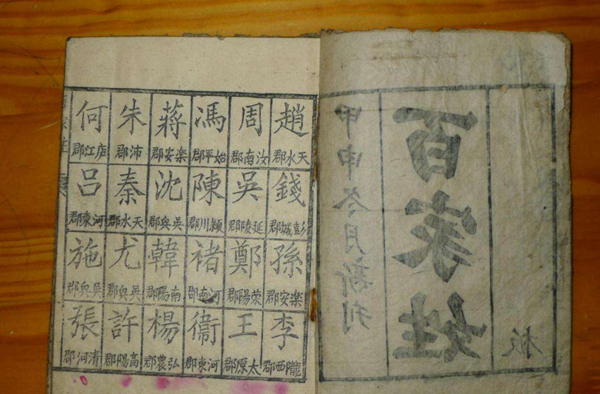 板
百家姓
甲申冬月新刊
趙
天水郡
錢
彭城郡
孫
楽安郡
李
隴西郡
周
汝南郡
吳
延陵郡
鄭
荥陽郡
王
太原郡
馮
始平郡
陳
潁川郡
褚
河南郡
衞
河東郡
蔣
楽安郡
沈
吳興郡
韓
南陽郡
楊
弘農郡
朱
沛郡
秦
天水郡
尤
吳興郡
許
高陽郡
何
庐江郡
呂
河東郡
施
吳興郡
張
清河郡